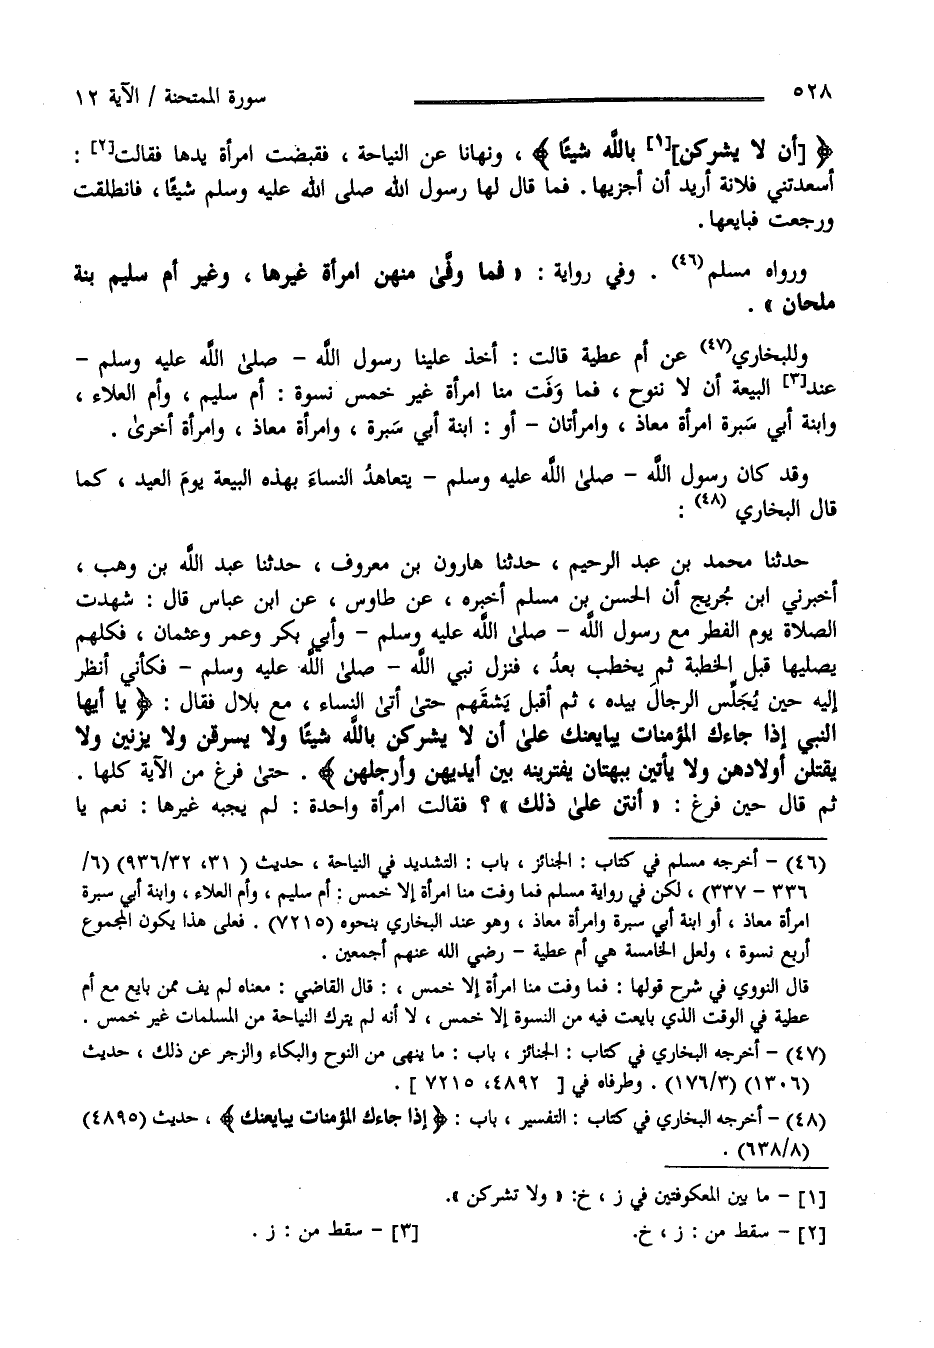 ٥٢٨ سورة الممتحنة / الآية ١٢
﴿ [أن لا يشركن][١] بالله شيئًا ﴾ ، ونهانا عن النياحة ، فقبضت امرأة يدها فقالت[٢] :
أسعدتني فلانة أريد أن أجزيها . فما قال لها رسول الله صلى الله عليه وسلم شيئًا ، فانطلقت
ورجعت فبايعها .
ورواه مسلم(٤٦) . وفي رواية : « فما وفَّىٰ منهن امرأة غيرها ، وغير أم سليم بنة
ملحان » .
وللبخاري(٤٧) عن أم عطية قالت : أخذ علينا رسول اللَّه – صلىٰ اللَّه عليه وسلم –
عند[٣] البيعة أن لا ننوح ، فما وَفَت منا امرأة غير خمس نسوة : أم سليم ، وأم العلاء ،
وابنة أبي سَبرة امرأة معاذ ، وامرأتان – أو : ابنة أبي سَبرة ، وامرأة معاذ ، وامرأة أخرىٰ .
وقد كان رسول اللَّه – صلىٰ اللَّه عليه وسلم – يتعاهدُ النساءَ بهذه البيعة يومَ العيد ، كما
قال البخاري (٤٨) :
حدثنا محمد بن عبد الرحيم ، حدثنا هارون بن معروف ، حدثنا عبد اللَّه بن وهب ،
أخبرني ابن جُريج أن الحسن بن مسلم أخبره ، عن طاوس ، عن ابن عباس قال : شهدت
الصلاة يوم الفطر مع رسول اللَّه – صلىٰ اللَّه عليه وسلم – وأبي بكر وعمر وعثمان ، فكلهم
يصليها قبل الخطبة ثم يخطب بعدُ ، فنزل نبي اللَّه – صلىٰ اللَّه عليه وسلم – فكأني أنظر
إليه حين يُجَلِّس الرجالَ بيده ، ثم أقبل يَشقَهم حتىٰ أتىٰ النساء ، مع بلال فقال : ﴿ يا أيها
النبي إذا جاءك المؤمنات يبايعنك علىٰ أن لا يشركن باللَّه شيئًا ولا يسرقن ولا يزنين ولا
يقتلن أولادهن ولا يأتين ببهتان يفترينه بين أيديهن وأرجلهن ﴾ . حتىٰ فرغ من الآية كلها .
ثم قال حين فرغ : « أنتن علىٰ ذلك » ؟ فقالت امرأة واحدة : لم يجبه غيرها : نعم يا
(٤٦) – أخرجه مسلم في كتاب : الجنائز ، باب : التشديد في النياحة ، حديث ( ٣١، ٩٣٦/٣٢) (٦/
٣٣٦ – ٣٣٧) ، لكن في رواية مسلم فما وفت منا امرأة إلا خمس : أم سليم ، وأم العلاء ، وابنة أبي سبرة
امرأة معاذ ، أو ابنة أبي سبرة وامرأة معاذ ، وهو عند البخاري بنحوه (٧٢١٥) . فعلى هذا يكون المجموع
أربع نسوة ، ولعل الخامسة هي أم عطية – رضي الله عنهم أجمعين .
قال النووي في شرح قولها : فما وفت منا امرأة إلا خمس ، : قال القاضي : معناه لم يف ممن بايع مع أم
عطية في الوقت الذي بايعت فيه من النسوة إلا خمس ، لا أنه لم يترك النياحة من المسلمات غير خمس .
(٤٧) – أخرجه البخاري في كتاب : الجنائز ، باب : ما ينهى من النوح والبكاء والزجر عن ذلك ، حديث
(١٣٠٦) (١٧٦/٣) . وطرفاه في [ ٤٨٩٢، ٧٢١٥ ] .
(٤٨) – أخرجه البخاري في كتاب : التفسير ، باب : ﴿ إذا جاءك المؤمنات يبايعنك ﴾ ، حديث (٤٨٩٥)
(٦٣٨/٨) .
[١] – ما بين المعكوفتين في ز ، خ: « ولا تشركن ».
[٢] – سقط من : ز ، خ. [٣] – سقط من : ز .